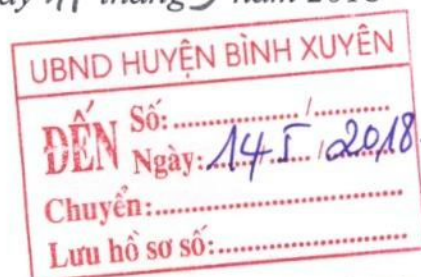 tháng 5 năm 2018
UBND HUYỆN BÌNH XUYÊN
ĐẾN Số: ................/............
Ngày: 14 I /2018
Chuyển:................................
Lưu hồ sơ số:........................